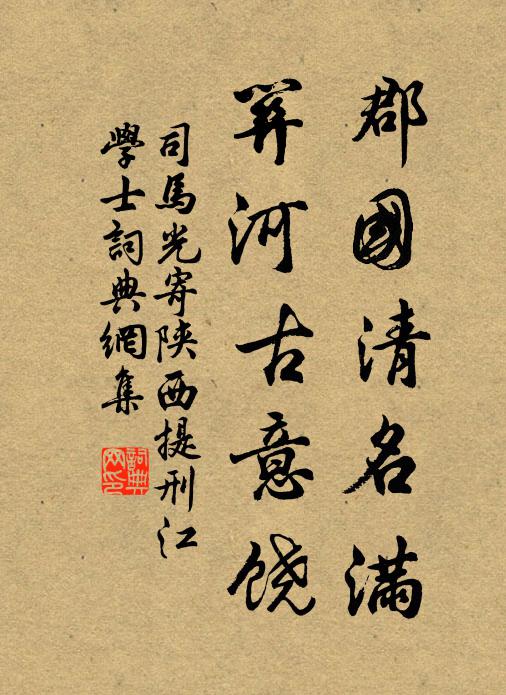 郡國清名滿
關河古意饒
司馬光寄陝西提刑江
學士詞典網集
詞典网印